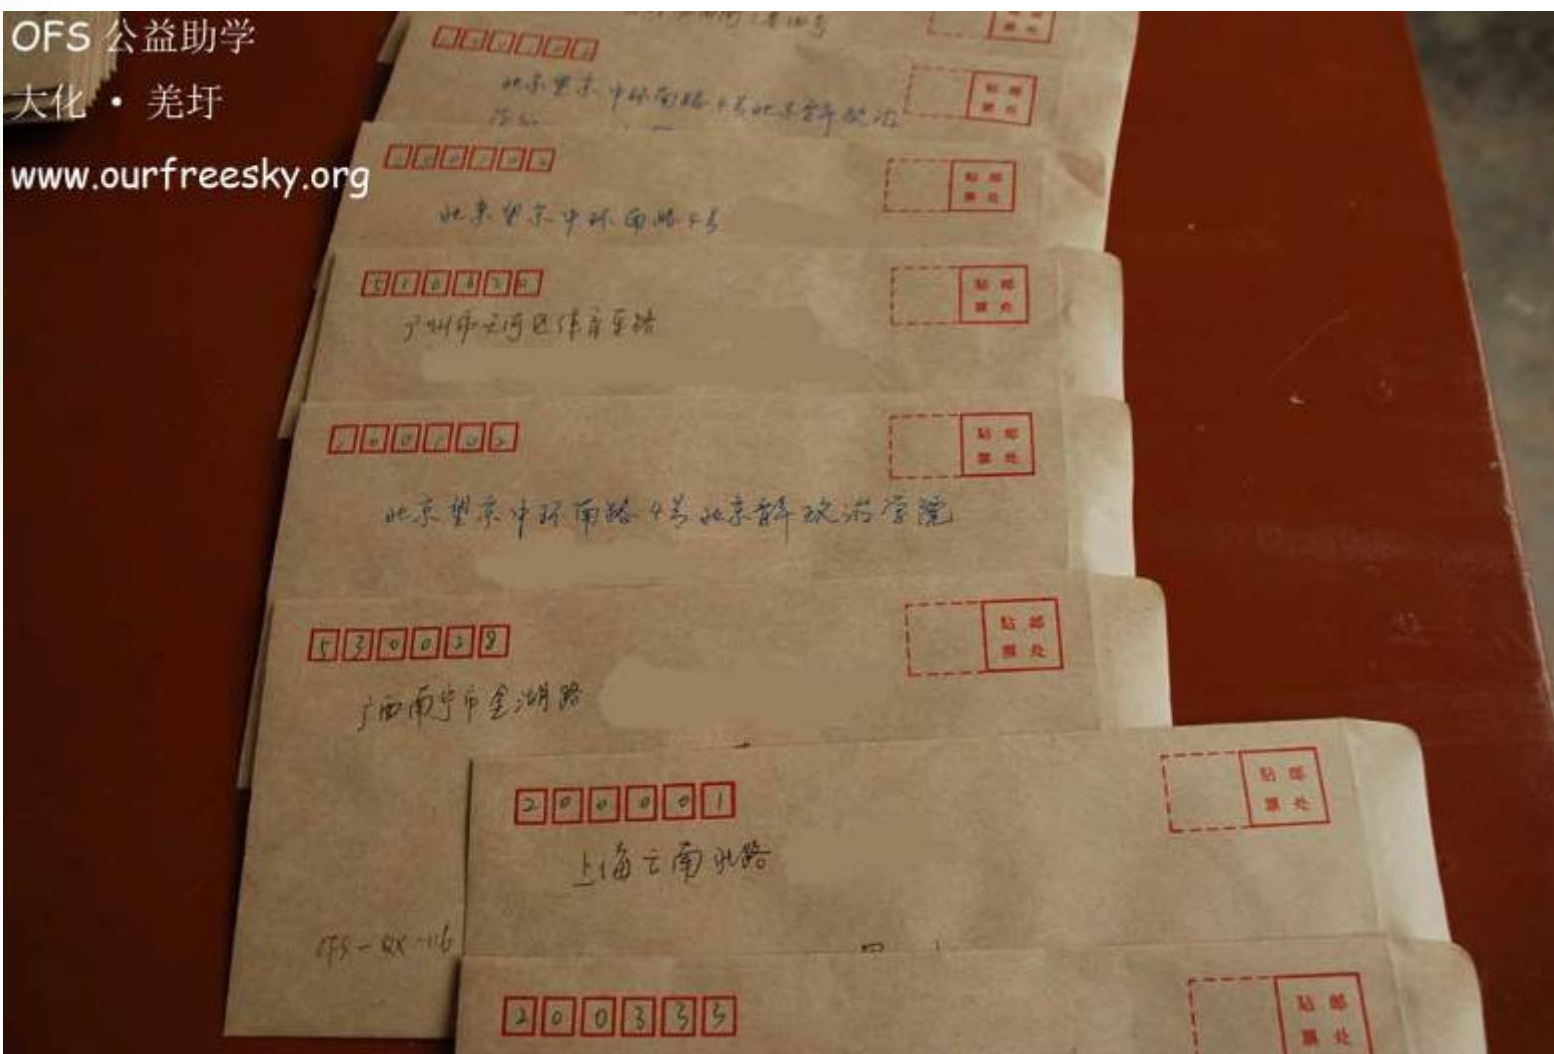 OFS 公益助学
大化 · 羌圩
www.ourfreesky.org
贴 邮
票 处
北京望京中环南路4号北京青年政治
学院
贴 邮
票 处
100102
北京望京中环南路4号
贴 邮
票 处
510620
广州市天河区体育东路
贴 邮
票 处
100102
北京望京中环南路4号北京青年政治学院
贴 邮
票 处
530028
广西南宁市金湖路
贴 邮
票 处
OFS-QX-116
200001
上海云南北路
贴 邮
票 处
200333
贴 邮
票 处